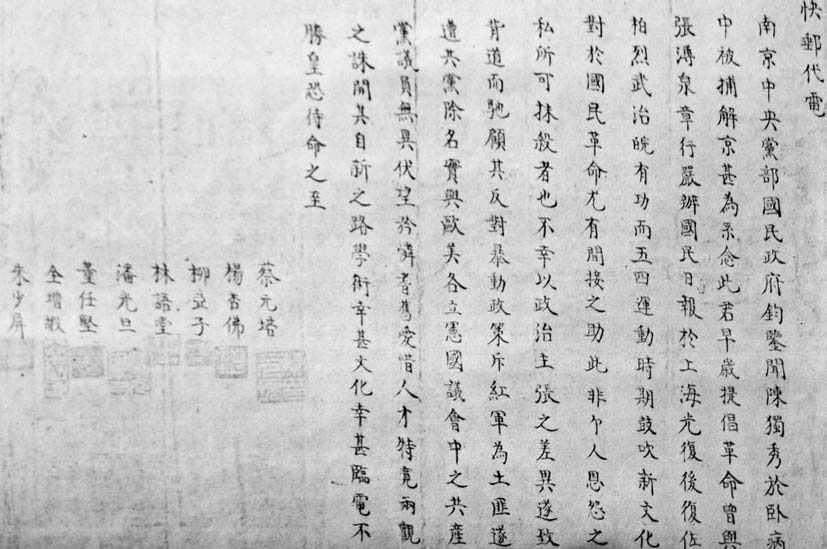 快郵代電
南京中央黨部國民政府鈞鑒聞陳獨秀於卧病
中被捕解京甚為系念此君早歲提倡革命曾與
張溥泉章行嚴辦國民日報於上海光復後復佐
柏烈武治皖有功而五四運動時期鼓吹新文化
對於國民革命尤有間接之助此非个人恩怨之
私所可抹殺者也不幸以政治主張之差異遂致
背道而馳顧其反對暴動政策斥紅軍為土匪遂
遭共黨除名實與歐美各立憲國議會中之共產
黨議員無異伏望矜憐耆舊愛惜人才特寬兩觀
之誅開其自新之路學術幸甚文化幸甚臨電不
勝皇恐待命之至
蔡元培
楊杏佛
柳亞子
林語堂
潘光旦
董任堅
全增嘏
朱少屏